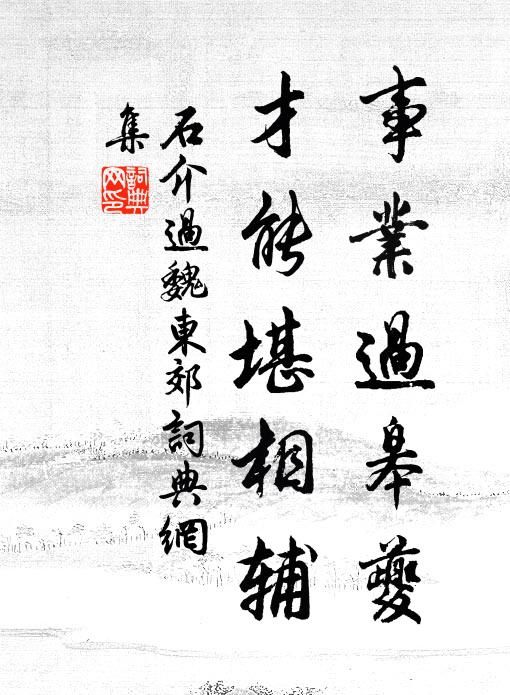 事業過皋夔
才能堪相輔
石介過魏東郊詞典網
集
詞典
网印